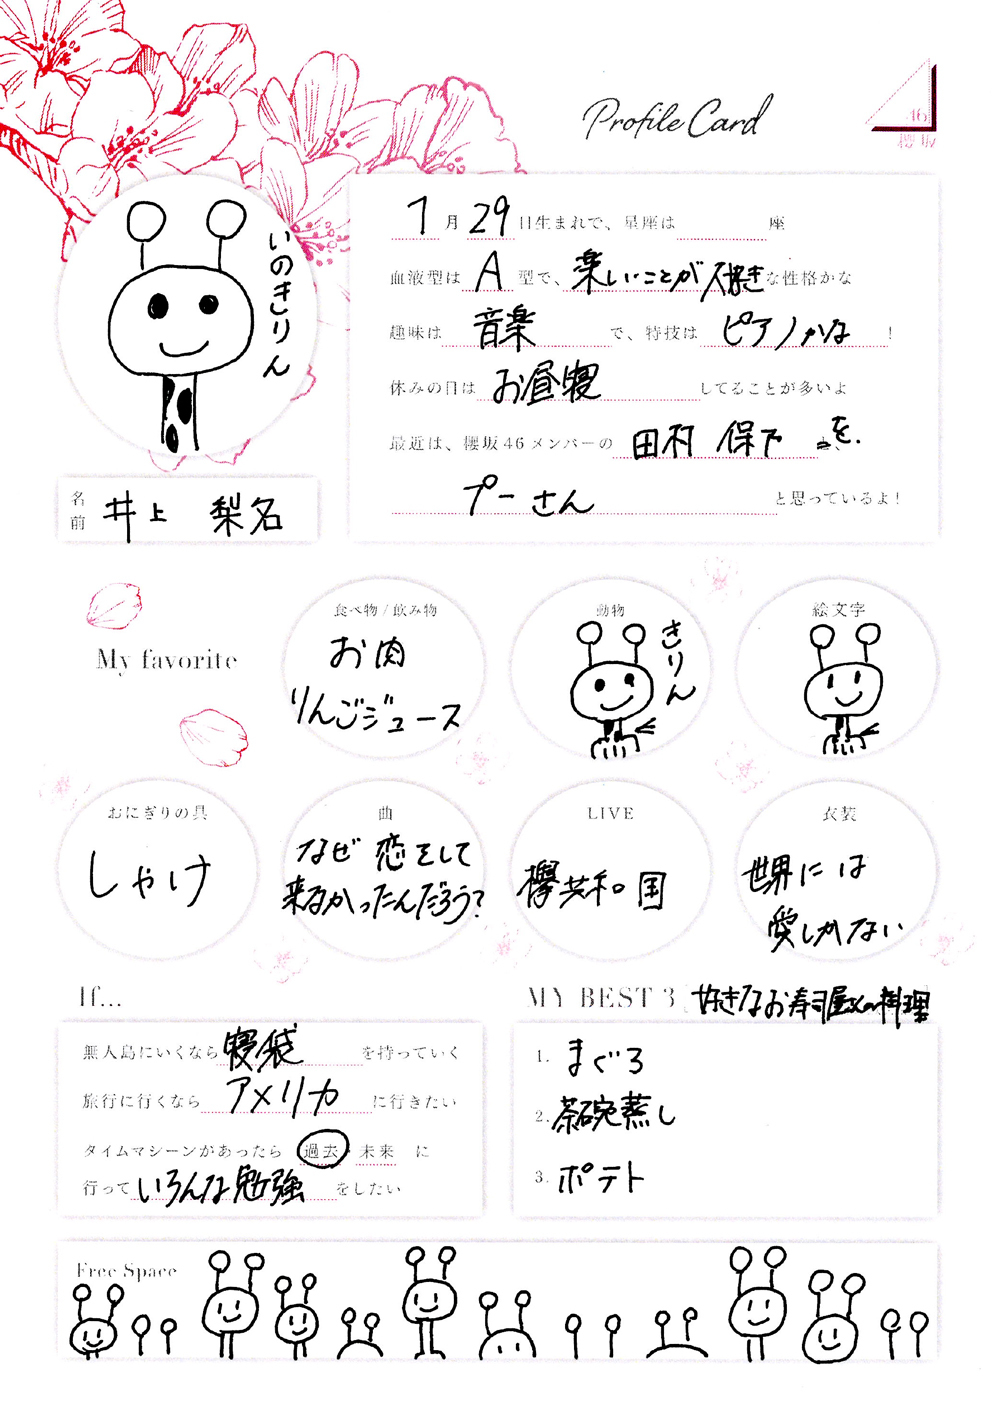 Profile Card
46
櫻坂
いのきりん
名前 井上 梨名
7月29日生まれで、星座は 座
血液型はA型で、楽しいことが大好きな性格かな
趣味は音楽で、特技はピアノかな!
休みの日はお昼寝してることが多いよ
最近は、櫻坂46メンバーの田村 保乃を、
プーさんと思っているよ!
My favorite
食べ物/飲み物
お肉
りんごジュース
動物
きりん
絵文字
おにぎりの具
しゃけ
曲
なぜ 恋をして
来なかったんだろう?
LIVE
欅共和国
衣装
世界には
愛しかない
If...
無人島にいくなら寝袋を持っていく
旅行に行くならアメリカに行きたい
タイムマシーンがあったら 過去・未来 に
行っていろんな勉強をしたい
MY BEST 3 好きなお寿司屋さんの料理
1. まぐろ
2. 茶碗蒸し
3. ポテト
Free Space